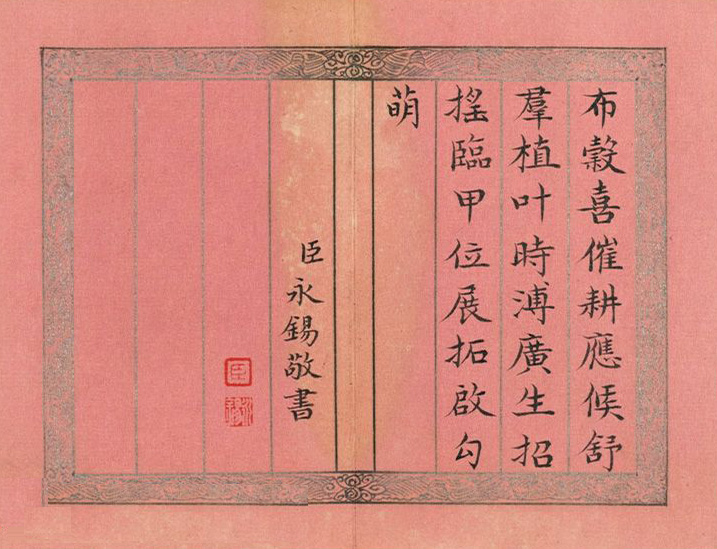 布穀喜催耕應候舒
羣植叶時溥廣生招
搖臨甲位展拓啟勾
萌
臣永錫敬書
臣
永錫